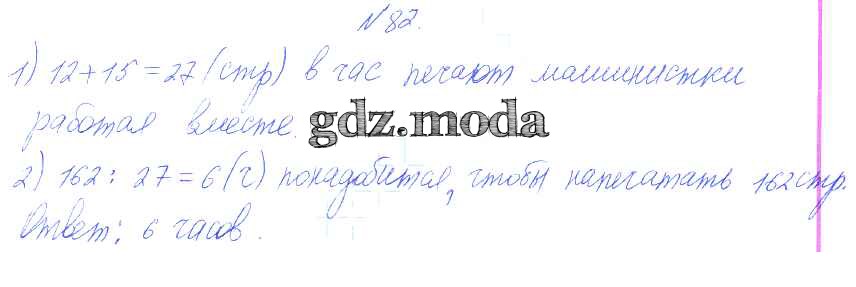 №82.
1) 12+15=27 (стр) в час печают машинистки
работая вместе.
gdz.moda
2) 162:27=6(ч) понадобится, чтобы напечатать 162 стр.
Ответ: 6 часов.